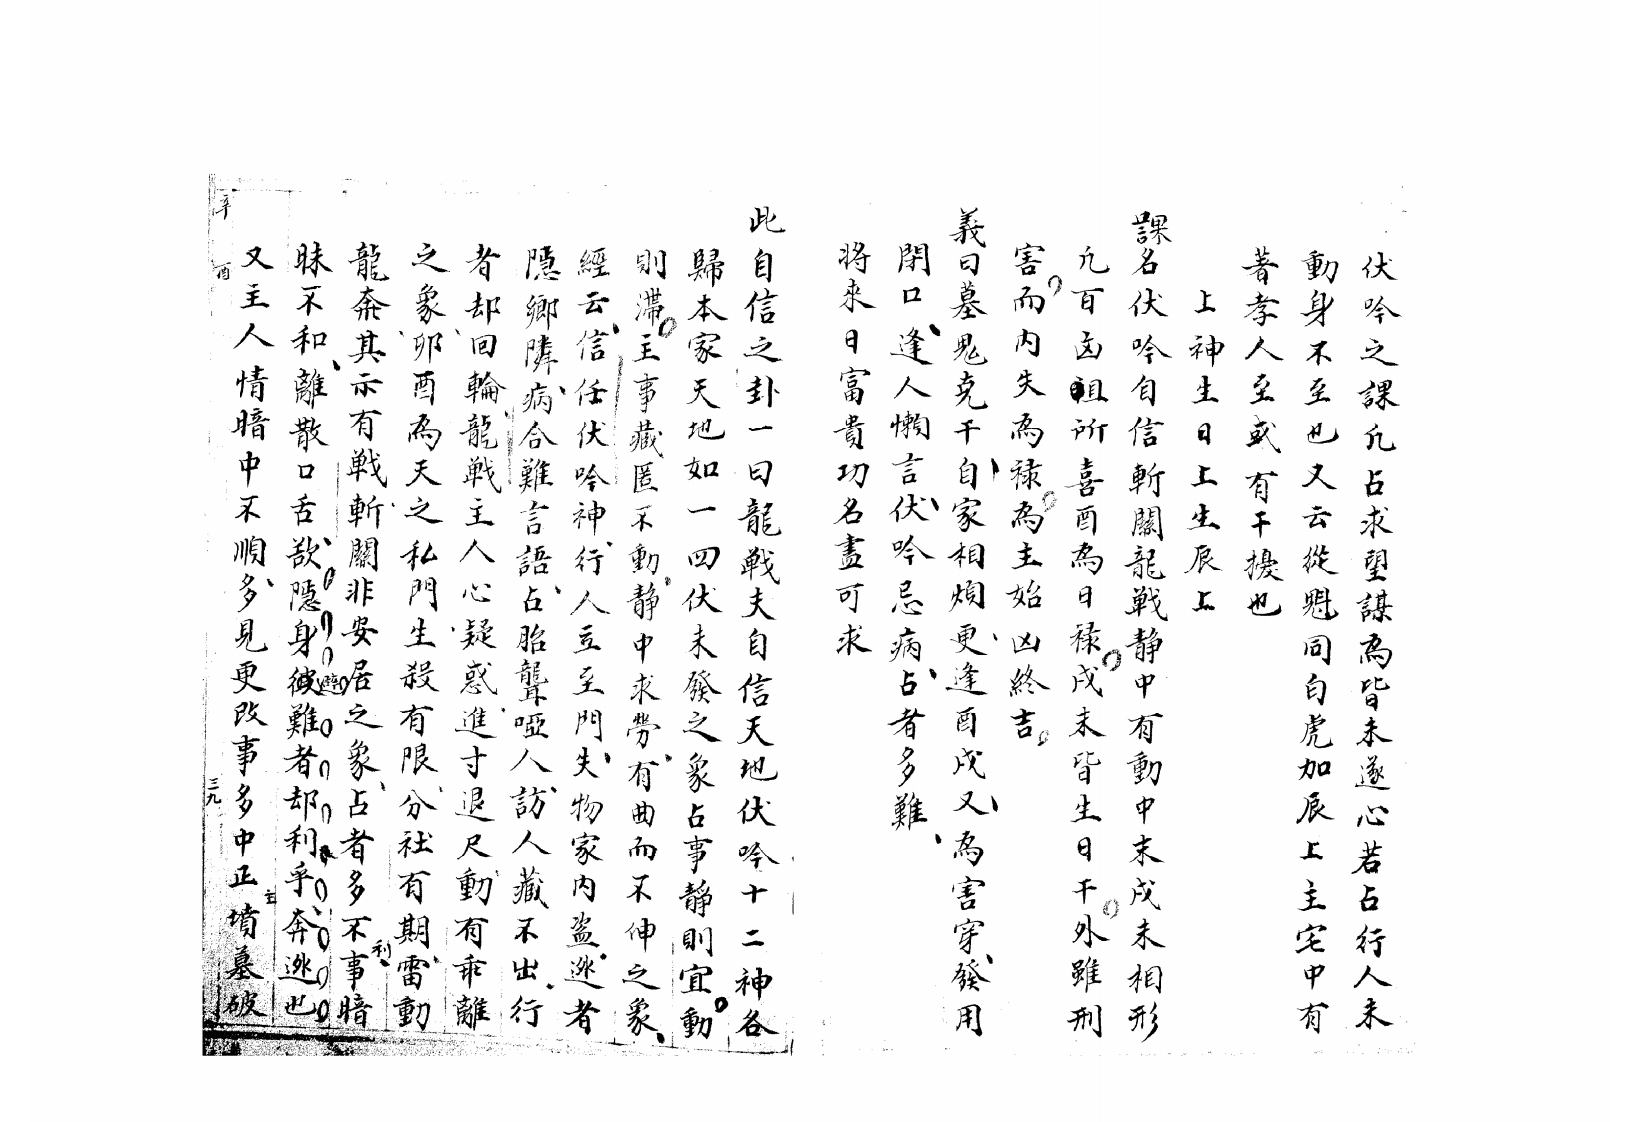 伏吟之課凢占求望謀為皆未遂心若占行人未
動身不至也又云從魁同白虎加辰上主宅中有
著孝人至或有干擾也
上神生日上生辰上
課名伏吟自信斬關龍戦静中有動中末戌未相形
凢百凶所喜酉為日禄戌未皆生日干外雖刑
害而内失為禄為主始凶終吉
義曰墓鬼克干自家相煩更逢酉戌又為害穿發用
閉口逢人懶言伏吟忌病占者多難
將來日富貴功名盡可求
此自信之卦一曰龍戦夫自信天地伏吟十二神各
歸本家天地如一四伏未發之象占事静則宜動
則滞主事藏匿不動静中求勞有曲而不伸之象
經云信任伏吟神行人立至門失物家内盜逃者
隱鄉隣病合難言語占胎聾啞人訪人藏不出行
者却回輪龍戦主人心疑惑進寸退尺動有乖離
之象卯酉為天之私門生殺有限分社有期雷動
龍奔其示有戦斬關非安居之象占者多不事暗
利
昧不和離散口舌歃隱身難者却利乎奔逃也
避
又主人情暗中不順多見更改事多中正墳墓破
主
辛
酉
三九